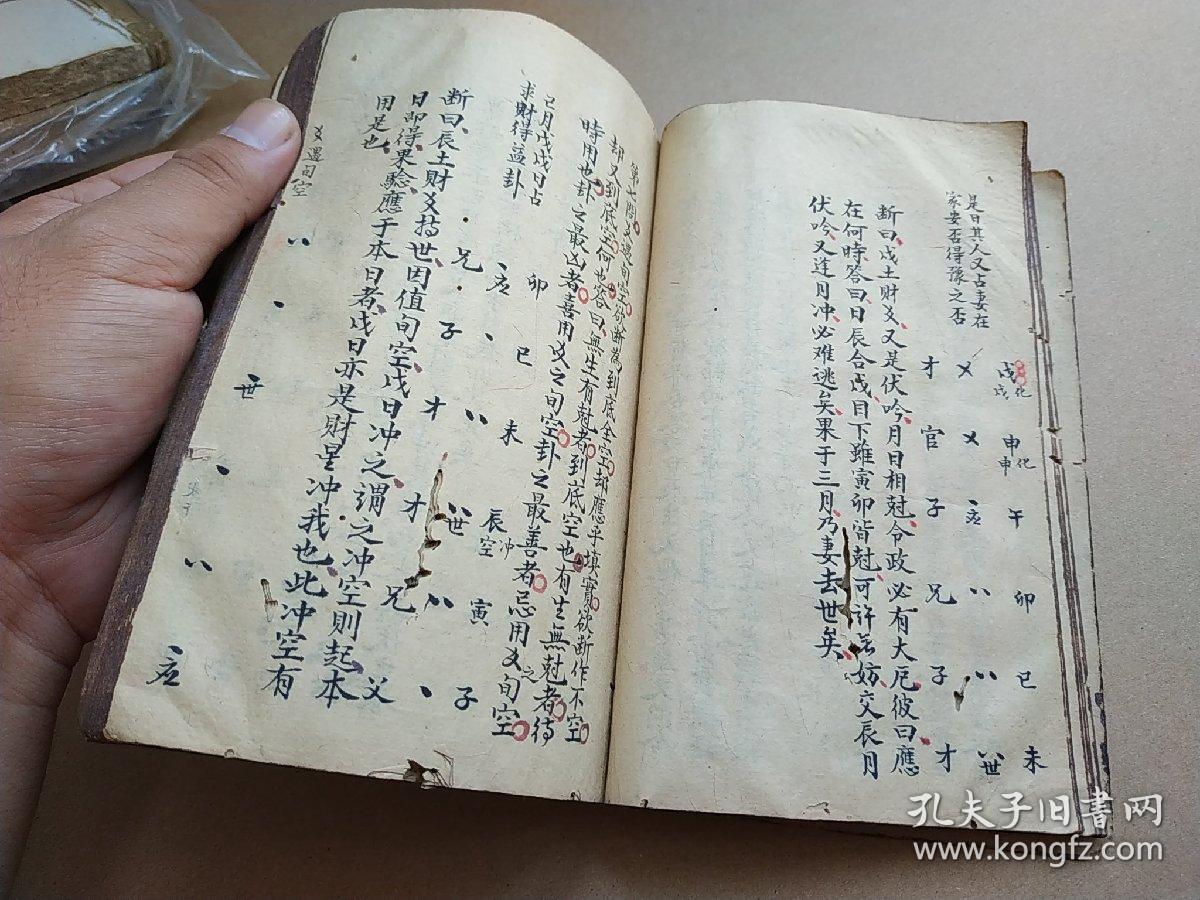 是日其人又占妻在
家安否得豫之否
戌化戌 申化申 午 卯 巳 未
乂 乂 应 世
才 官 子 兄 子 才
断曰戌土財爻又是伏吟月日相尅令政必有大厄彼曰應
在何時答曰日辰合戌目下雖寅卯皆尅可許無妨交辰月
伏吟又逢月冲必难逃矣果于三月乃妻去世矣
第七問爻遇旬空欲断為到底全空却應乎填實欲断作不空
却又到底空何也答曰無生有尅者到底空也有生無尅者待
時用也卦之最凶者喜用爻之旬空卦之最善者忌用爻之旬空
巳月戊戌日占
求財得益卦
卯 巳 未 辰空冲 寅 子
应 世
兄 子 才 才 兄 父
断曰辰土財爻持世因值旬空戌日冲之謂之冲空則起本
日即得果驗應于本日者戌日亦是財星冲我也此冲空有
用是也
爻遇旬空
世 应
孔夫子旧書网
www.kongfz.com